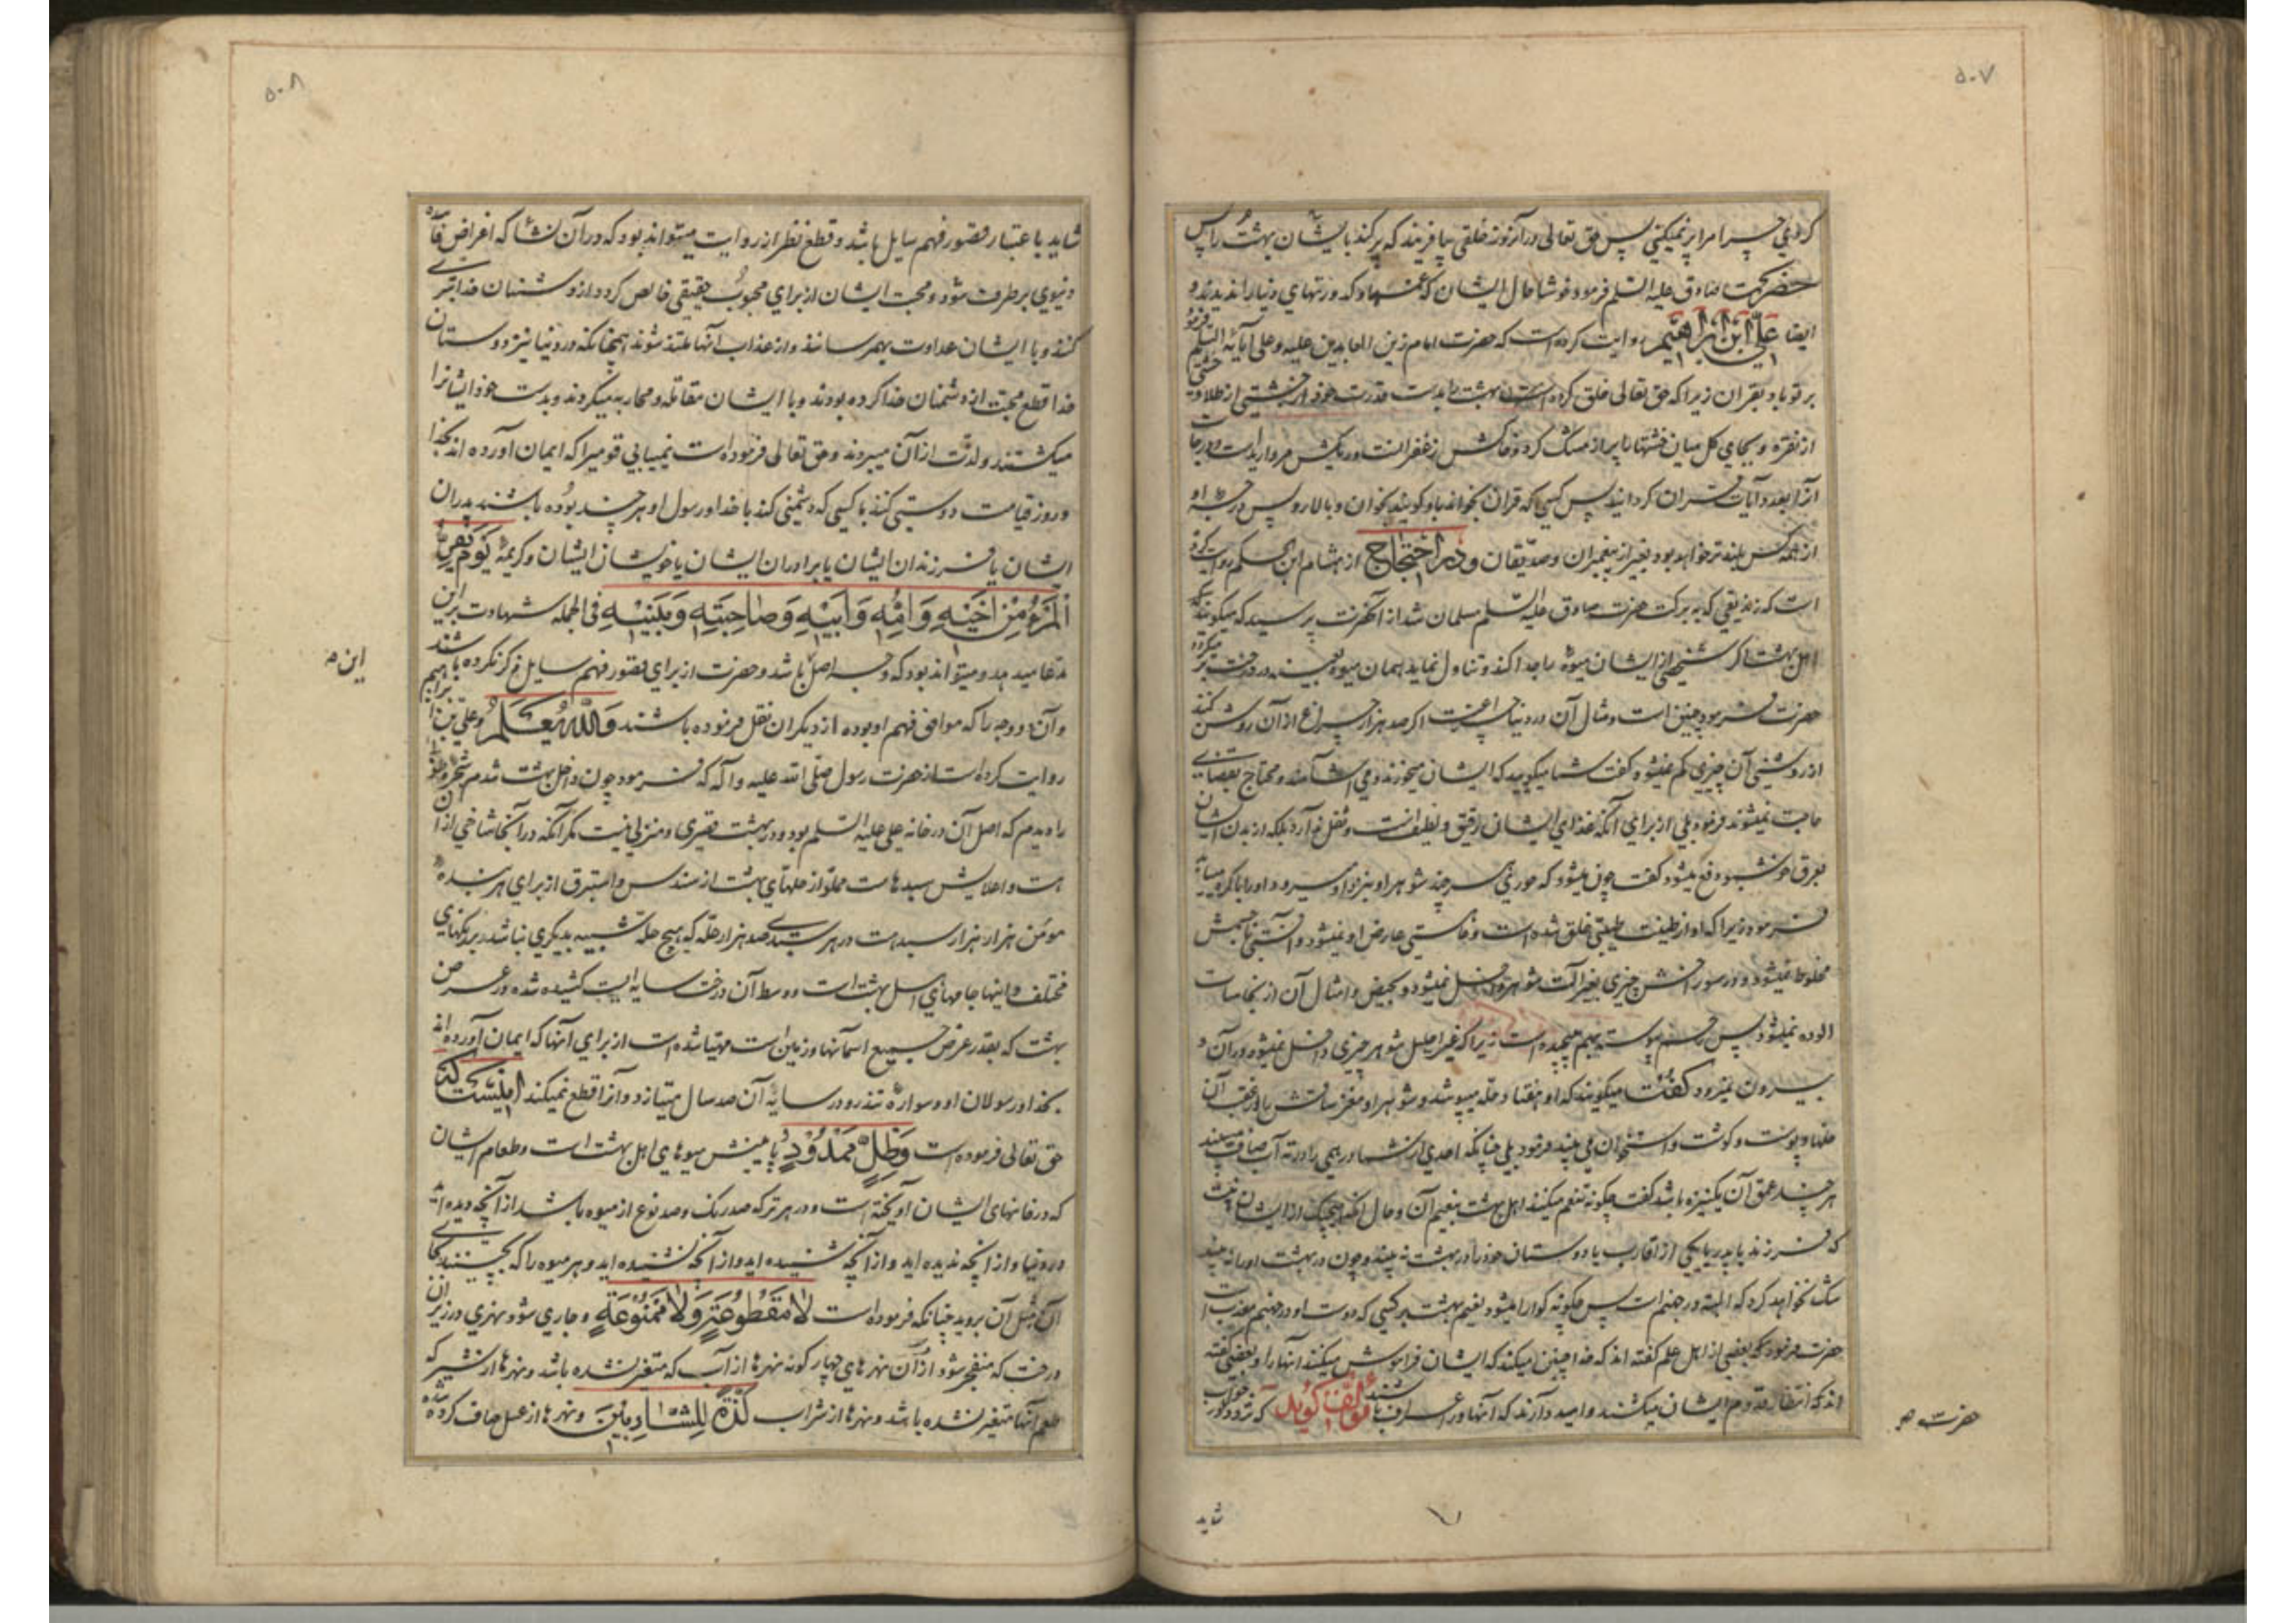 ۵۰۷
کردی چرا مرا پر نمیکنی پس حق تعالی در آنروز خلقی بیافریند که پر کند بایشان بهشت را پس
حضرت صادق علیه السلم فرمود خوشا حال ایشان که غمها و کدورتهای دنیا را ندیدند و
ایضا علی ابن ابراهیم روایت کرده است که حضرت امام زین العابدین علیه و علی آبائه السلم فرمود
بر تو باد بقران زیرا که حق تعالی خلق کرده است بهشت را بدست قدرت خود از خشتی از طلا و خشتی
از نقره و بجای کل میان خشتها را پر از مشک کرد و خاکش زعفرانست و ریکش مروارید است و درجات
آنرا بعدد آیات قران کردانید پس کسی که قران بخواند باو کویند بخوان و بالا رو پس درجه او
از همه کس بلندتر خواهد بود بغیر از پیغمبران و صدیقان و در احتجاج از هشام ابن الحکم روایت کرده
است که زندیقی که به برکت حضرت صادق علیه السلم مسلمان شد از آنحضرت پرسید که میکویند که
اهل بهشت اکر شخصی از ایشان میوه را جدا کند و تناول نماید همان میوه بعینه در درخت بر میکردد
حضرت فرمود چنین است و مثال آن در دنیا چراغیست اکر صد هزار چراغ از آن روشن کنند
از روشنی آن چیزی کم نمیشود کفت شما میکویید که ایشان میخورند و می آشامند و محتاج بقضای
حاجت نمیشوند فرمود بلی از برای آنکه غذای ایشان رقیق و لطیفست و ثقل ندارد بلکه از بدن ایشان
بعرق خوشبو دفع میشود کفت چون میشود که حوری هر چند شوهر او بنزد او میرود او را باکره مییابد
فرمود زیرا که او از طینت طیبی خلق شده است و فاستی عارض او نمیشود و آفتی با جسمش
مخلوط نمیشود و در سوراخش چیزی بغیر آلت شوهر داخل نمیشود و بحیض و امثال آن از نجاسات
الوده نمیشود پس رحم پیوسته بهم چپیده است زیرا که غیر احلیل شوهر چیزی داخل نمیشود در آن و
بیرون نمیرود کفت میکویند که او هفتاد حله میپوشد و شوهر او مغز ساقش را از عقب آن
حلها و پوست و کوشت و استخوان می بیند فرمود بلی چنانکه احدی از شما درهمی را در ته آب صاف میبیند
هر چند عمق آن یکنیزه باشد کفت چکونه تنعم میکنند اهل بهشت بنعیم آن و حال آنکه هیچیک از ایشان نیست
که فرزند یا پدر یا یکی از اقارب یا دوستان خود را در بهشت نه بیند و چون در بهشت او را نه بیند
شک نخواهد کرد که البته در جهنم است پس چکونه کوارا میشود نعیم بهشت بر کسی که دوست او در جهنم معذبست
حضرت فرمود که بعضی از اهل علم کفته اند که خدا چنین میکند که ایشان فراموش میکنند آنها را و بعضی کفته
اند که انتظار قدوم ایشان میکشند و امید دارند که آنها در اعراف باشند مؤلف کوید که تردد در جواب
حضرت صح
شاید
۵۰۸
شاید باعتبار قصور فهم سایل باشد و قطع نظر از روایت میتواند بود که در آن نشأ که اغراض فاسده
دنیوی برطرف شود و محبت ایشان از برای محبوب حقیقی خالص کردد از دشمنان خدا تبری
کنند و با ایشان عداوت بهم رسانند و از عذاب آنها ملتذ شوند همچنانکه در دنیا نیز دوستان
خدا قطع محبت از دشمنان خدا کرده بودند و با ایشان مقاتله و محاربه میکردند و بدست خود ایشانرا
میکشتند و لذت از آن میبردند و حق تعالی فرموده است نمییابی قومیرا که ایمان آورده اند بخدا
و روز قیامت دوستی کنند با کسی که دشمنی کند با خدا و رسول او هر چند بوده باشند پدران
ایشان یا فرزندان ایشان یا برادران ایشان یا خویشان ایشان و کریمهٔ یوم یفر
المرء من اخیه و امه و ابیه و صاحبته و بنیه فی الجمله شهادت بر این
مدعا میدهد و میتواند بود که وجه اصل باشد و حضرت از برای قصور فهم سایل ذکر نکرده باشند
این صح
و آن دو وجه را که موافق فهم او بوده از دیکران نقل فرموده باشند والله یعلم و علی بن ابراهیم
روایت کرده است از حضرت رسول صلی الله علیه و آله که فرمود چون داخل بهشت شدم شجرهٔ طوبی
را دیدم که اصل آن در خانه علی علیه السلم بود و در بهشت قصری و منزلی نیست مکر آنکه در آنجا شاخی از آن
هست و اعلایش سبدهاست مملو از حلهای بهشت از سندس و استبرق از برای هر بنده
مومن هزار هزار سبد است در هر سبدی صد هزار حله که هیچ حله شبیه بدیکری نباشد برنکهای
مختلف و اینها جامهای اهل بهشت است و وسط آن درخت سایه ایست کشیده شده در عرض
بهشت که بقدر عرض جمیع آسمانها و زمین است مهیا شده است از برای آنها که ایمان آورده اند
بخدا و رسولان او و سواره تندرو در سایه آن صد سال میتازد و آنرا قطع نمیکند اینست که
حق تعالی فرموده است وظل ممدود پایینش میوهای اهل بهشت است و طعام ایشان
که در خانهای ایشان آویخته است و در هر ترکه صد رنک و صد نوع از میوه باشد از آنچه دیده اید
در دنیا و از آنچه ندیده اید و از آنچه شنیده اید و از آنچه نشنیده اید و هر میوه را که بچینند بجای
آن مثل آن بروید چنانکه فرموده است لا مقطوعة ولا ممنوعة و جاری شود نهری در زیر آن
درخت که منفجر شود از آن نهرهای چهار کونه نهرها از آب که متغیر نشده باشد و نهرها از شیر که
طعم آنها متغیر نشده باشد و نهرها از شراب لذة للشاربین و نهرها از عسل صاف کرده شده